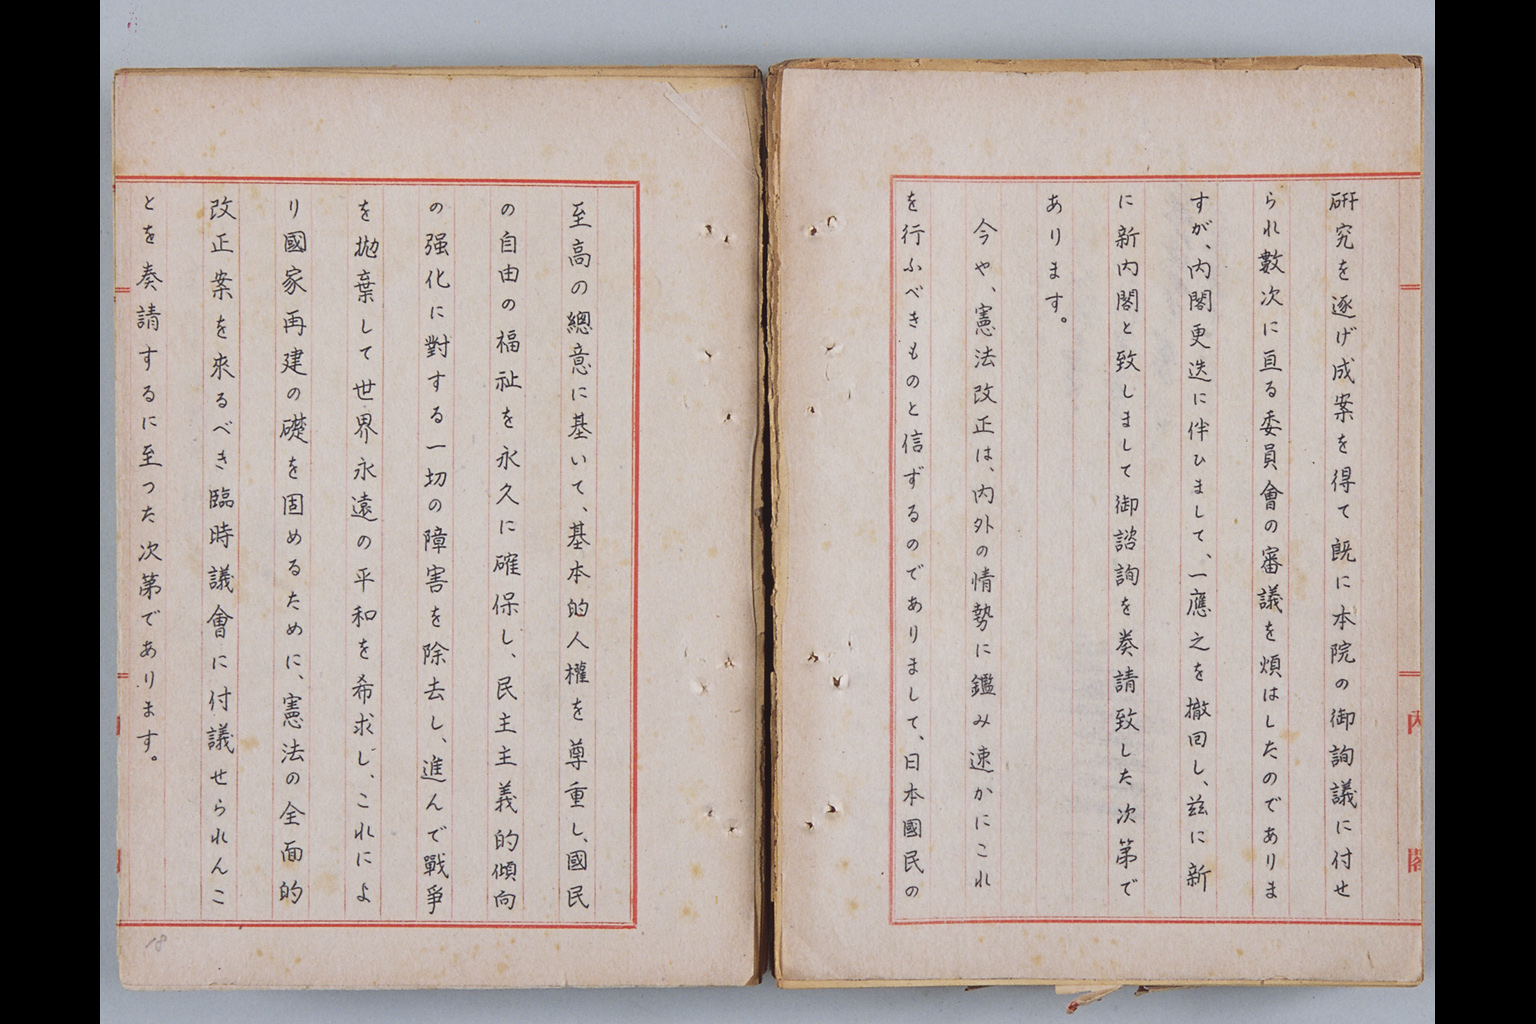 研究を逐げ成案を得て既に本院の御詢議に付せ
られ數次に亘る委員會の審議を煩はしたのでありま
すが、内閣更迭に伴ひまして、一應之を撤回し、玆に新
に新内閣と致しまして御諮詢を奏請致した次第で
あります。
今や、憲法改正は、内外の情勢に鑑み速かにこれ
を行ふべきものと信ずるのでありまして、日本國民の
至高の總意に基いて、基本的人權を尊重し、國民
の自由の福祉を永久に確保し、民主主義的傾向
の强化に對する一切の障害を除去し、進んで戰爭
を抛棄して世界永遠の平和を希求し、これによ
り國家再建の礎を固めるために、憲法の全面的
改正案を來るべき臨時議會に付議せられんこ
とを奏請するに至つた次第であります。
18